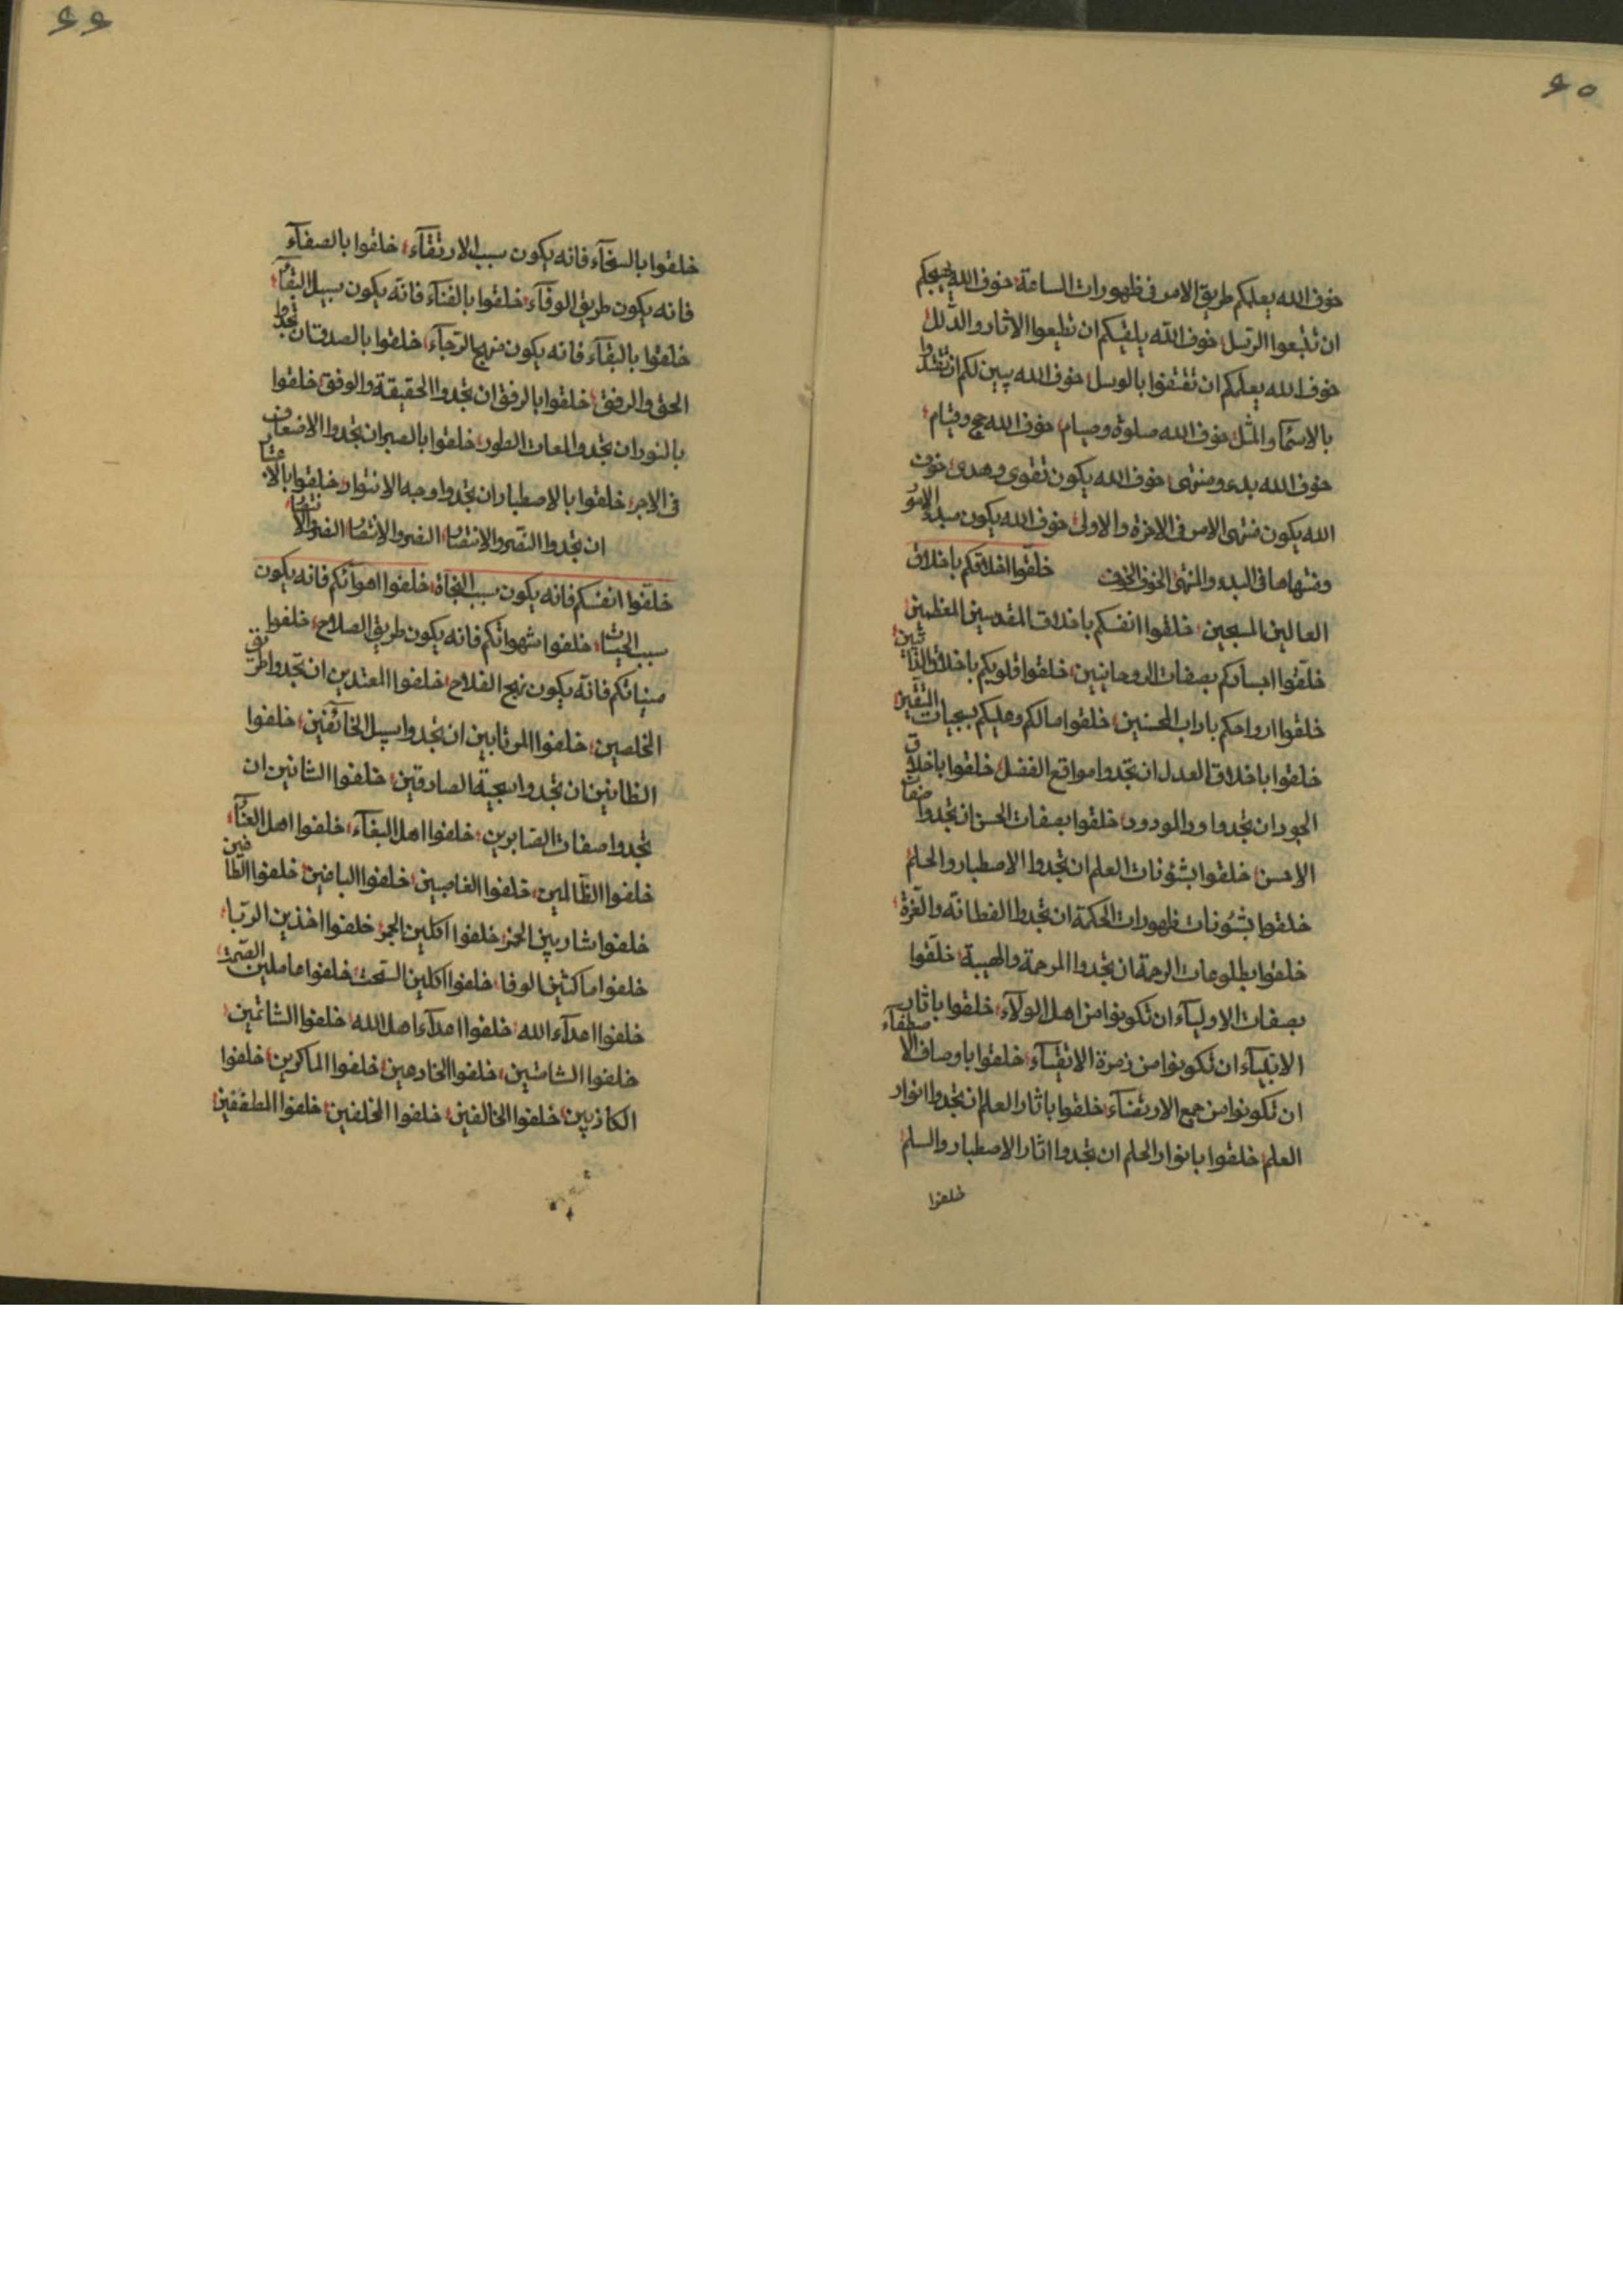 ٤٥
خوف الله يعلمكم طريق الامر فی ظهورات الساعة خوف الله
ان تتبعوا الرسل خوف الله يلقيكم ان تطيعوا الاثار والدلل
خوف الله يعلمكم ان تقتفوا بالوسل خوف الله يبين لكم ان تقتدوا
بالاسما والمثل خوف الله صلوة وصيام خوف الله حج وقيام
خوف الله بدء ومنتهی خوف الله يكون تقوی وهدی خوف
الله يكون منتهی الامر فی الاخرة والاولی خوف الله يكون مبدء
ومنتهاها فی البدء والمنتهی الخوف الخوف خلقوا اخلاقكم باخلاق
العالين المسبحين خلقوا انفسكم باخلاق المقدسين المعظمين
خلقوا اجسادكم بصفات الروحانيين خلقوا قلوبكم باخلاق
خلقوا ارواحكم باداب المحسنين خلقوا مالكم وعليكم بسجيات المتقين
خلقوا باخلاق العدل ان تجدوا مواقع الفضل خلقوا باخلاق
الجود ان تجدوا ود المودود خلقوا بصفات الحسن ان تجدوا صفات
الاحسن خلقوا بشئونات العلم ان تجدوا الاصطبار والحلم
خلقوا بشئونات ظهورات الحكمة ان تجدوا الفطانة والعزة
خلقوا بطلوعات الرحمة ان تجدوا المرحمة والهيبة خلقوا
بصفات الاولياء ان تكونوا من اهل الولاء خلقوا باثار
الانبياء ان تكونوا من زمرة الاتقياء خلقوا باوصاف الاصطفاء
ان تكونوا من جمع الارتضاء خلقوا باثار العلم ان تجدوا انوار
العلم خلقوا بانوار الحلم ان تجدوا اثار الاصطبار والسلم
خلقوا
٤٤
خلقوا بالسخاء فانه يكون سبب الارتقاء خلقوا بالصفاء
فانه يكون طريق الوفاء خلقوا بالفناء فانه يكون سبيل البقاء
خلقوا بالبقاء فانه يكون منهج الرجاء خلقوا بالصدق ان تجدوا
الحق والرفق خلقوا بالرفق ان تجدوا الحقيقة والوفق خلقوا
بالنور ان تجدوا لمعات الطور خلقوا بالصبر ان تجدوا الاضعاف
فی الاجر خلقوا بالاصطبار ان تجدوا وجه الانوار خلقوا
ان تجدوا النصر والانتصار النصر والانتصار النصر والانتصار
خلفوا انفسكم فانه يكون سبب النجاة خلفوا اهوائكم فانه يكون
سبب الحيات خلفوا شهواتكم فانه يكون طريق الصلاح خلفوا
فانه يكون نهج الفلاح خلفوا المعتدين ان تجدوا طريق
المخلصين خلفوا المرتابين ان تجدوا سبيل الخائفين خلفوا
الظانين ان تجدوا سجية الصادقين خلفوا الشانين ان
تجدوا صفات الصابرين خلفوا اهل البغاء خلفوا اهل العناء
خلفوا الظالمين خلفوا الغاصبين خلفوا الباغين خلفوا
خلفوا شاربين الخمر خلفوا اكلين الجمر خلفوا اخذين الربا
خلفوا ناكثين الوفا خلفوا اكلين السحت خلفوا حاملين
خلفوا اعداء الله خلفوا اعداء اهل الله خلفوا الشاتمين
خلفوا الشامتين خلفوا الخادعين خلفوا الماكرين خلفوا
الكاذبين خلفوا المخالفين خلفوا المخلفين خلفوا المطففين